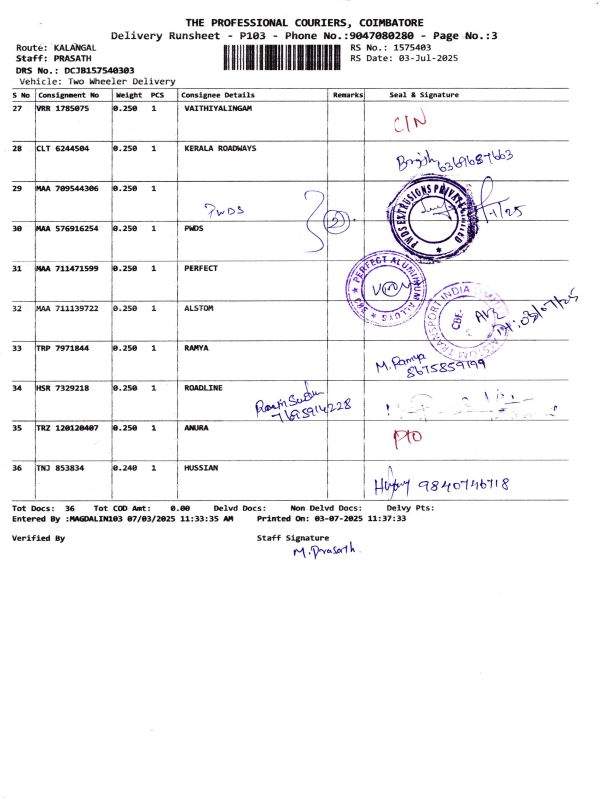 THE PROFESSIONAL COURIERS, COIMBATORE
Delivery Runsheet - P103 - Phone No.:9047080280 - Page No.:3
Route: KALANGAL RS No.: 1575403
Staff: PRASATH RS Date: 03-Jul-2025
DRS No.: DCJB157540303
Vehicle: Two Wheeler Delivery
S No Consignment No Weight PCS Consignee Details Remarks Seal & Signature
27 VRR 1785075 0.250 1 VAITHIYALINGAM
C/N
28 CLT 6244504 0.250 1 KERALA ROADWAYS
6369687663
29 MAA 709544306 0.250 1
PWDS
2
PWDS EXTRUSIONS PRIVATE LIMITED
30 MAA 576916254 0.250 1 PWDS
31 MAA 711471599 0.250 1 PERFECT
PERFECT ALUMINIUM ALLOYS
32 MAA 711139722 0.250 1 ALSTOM
TRANSPORT INDIA
CBE
33 TRP 7971844 0.250 1 RAMYA
M. Ramya
8675859199
34 HSR 7329218 0.250 1 ROADLINE
7695914228
35 TRZ 120120407 0.250 1 ANURA
PTO
36 TNJ 853834 0.240 1 HUSSIAN
9840746718
Tot Docs: 36 Tot COD Amt: 0.00 Delvd Docs: Non Delvd Docs: Delvy Pts:
Entered By :MAGDALIN103 07/03/2025 11:33:35 AM Printed On: 03-07-2025 11:37:33
Verified By Staff Signature
M. Prasath.